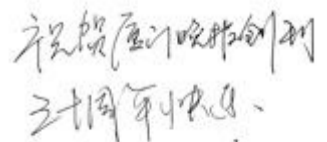 祝贺厦门晚报创刊
三十周年快乐、